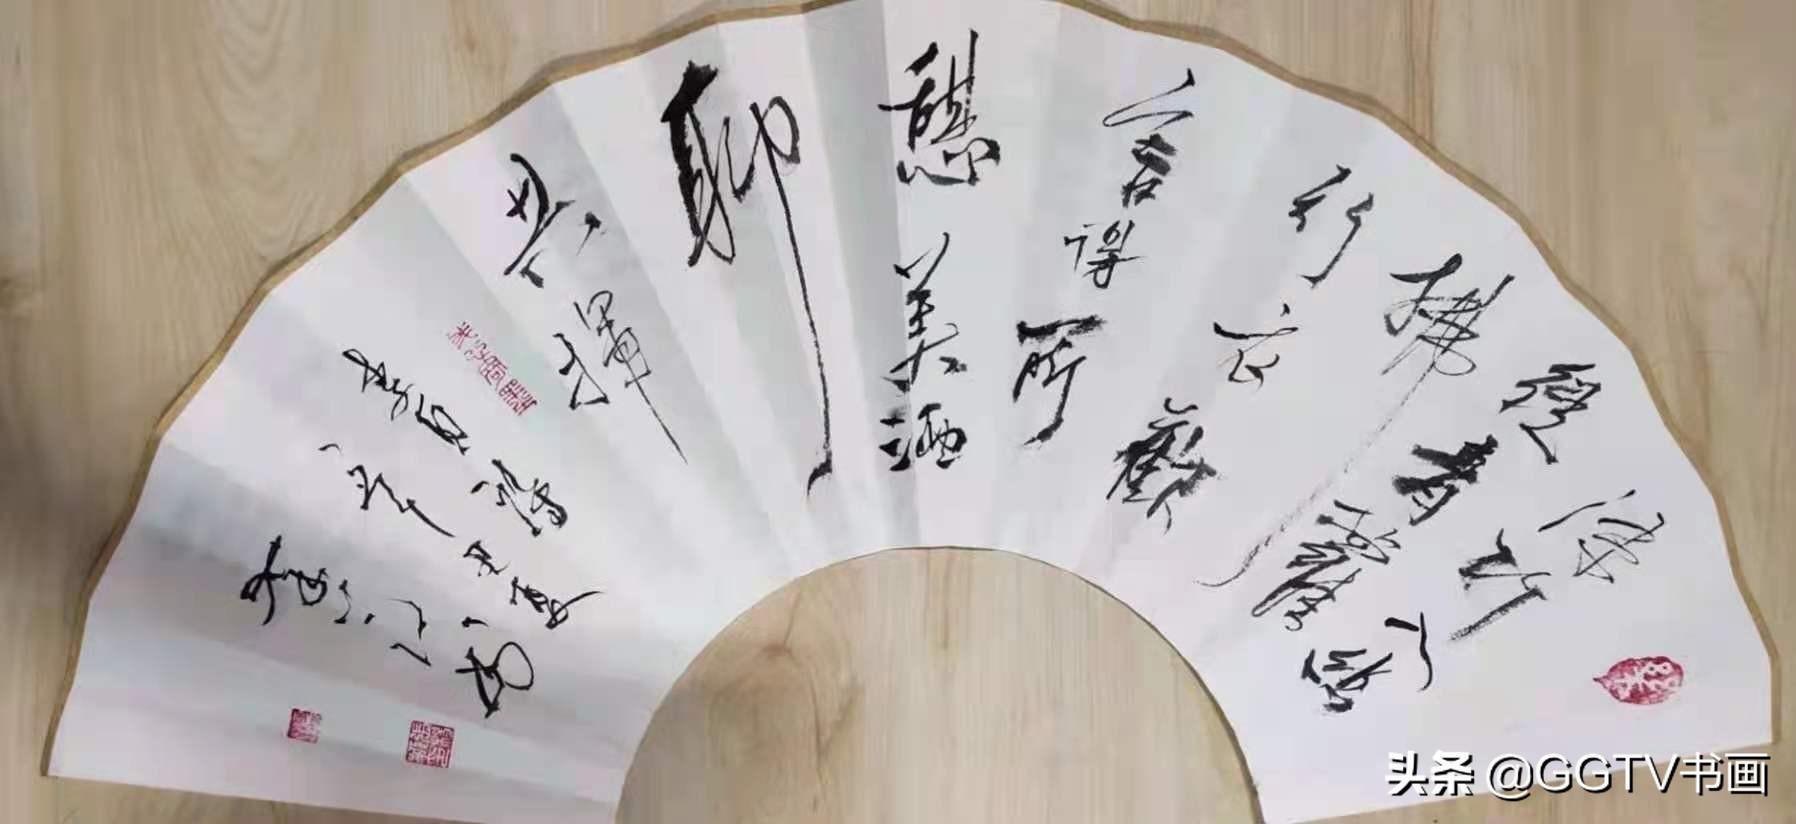 绿竹入幽
径青萝
拂
行衣欢
言得所
憩美酒
聊
共挥
李白诗
头条 @GGTV书画